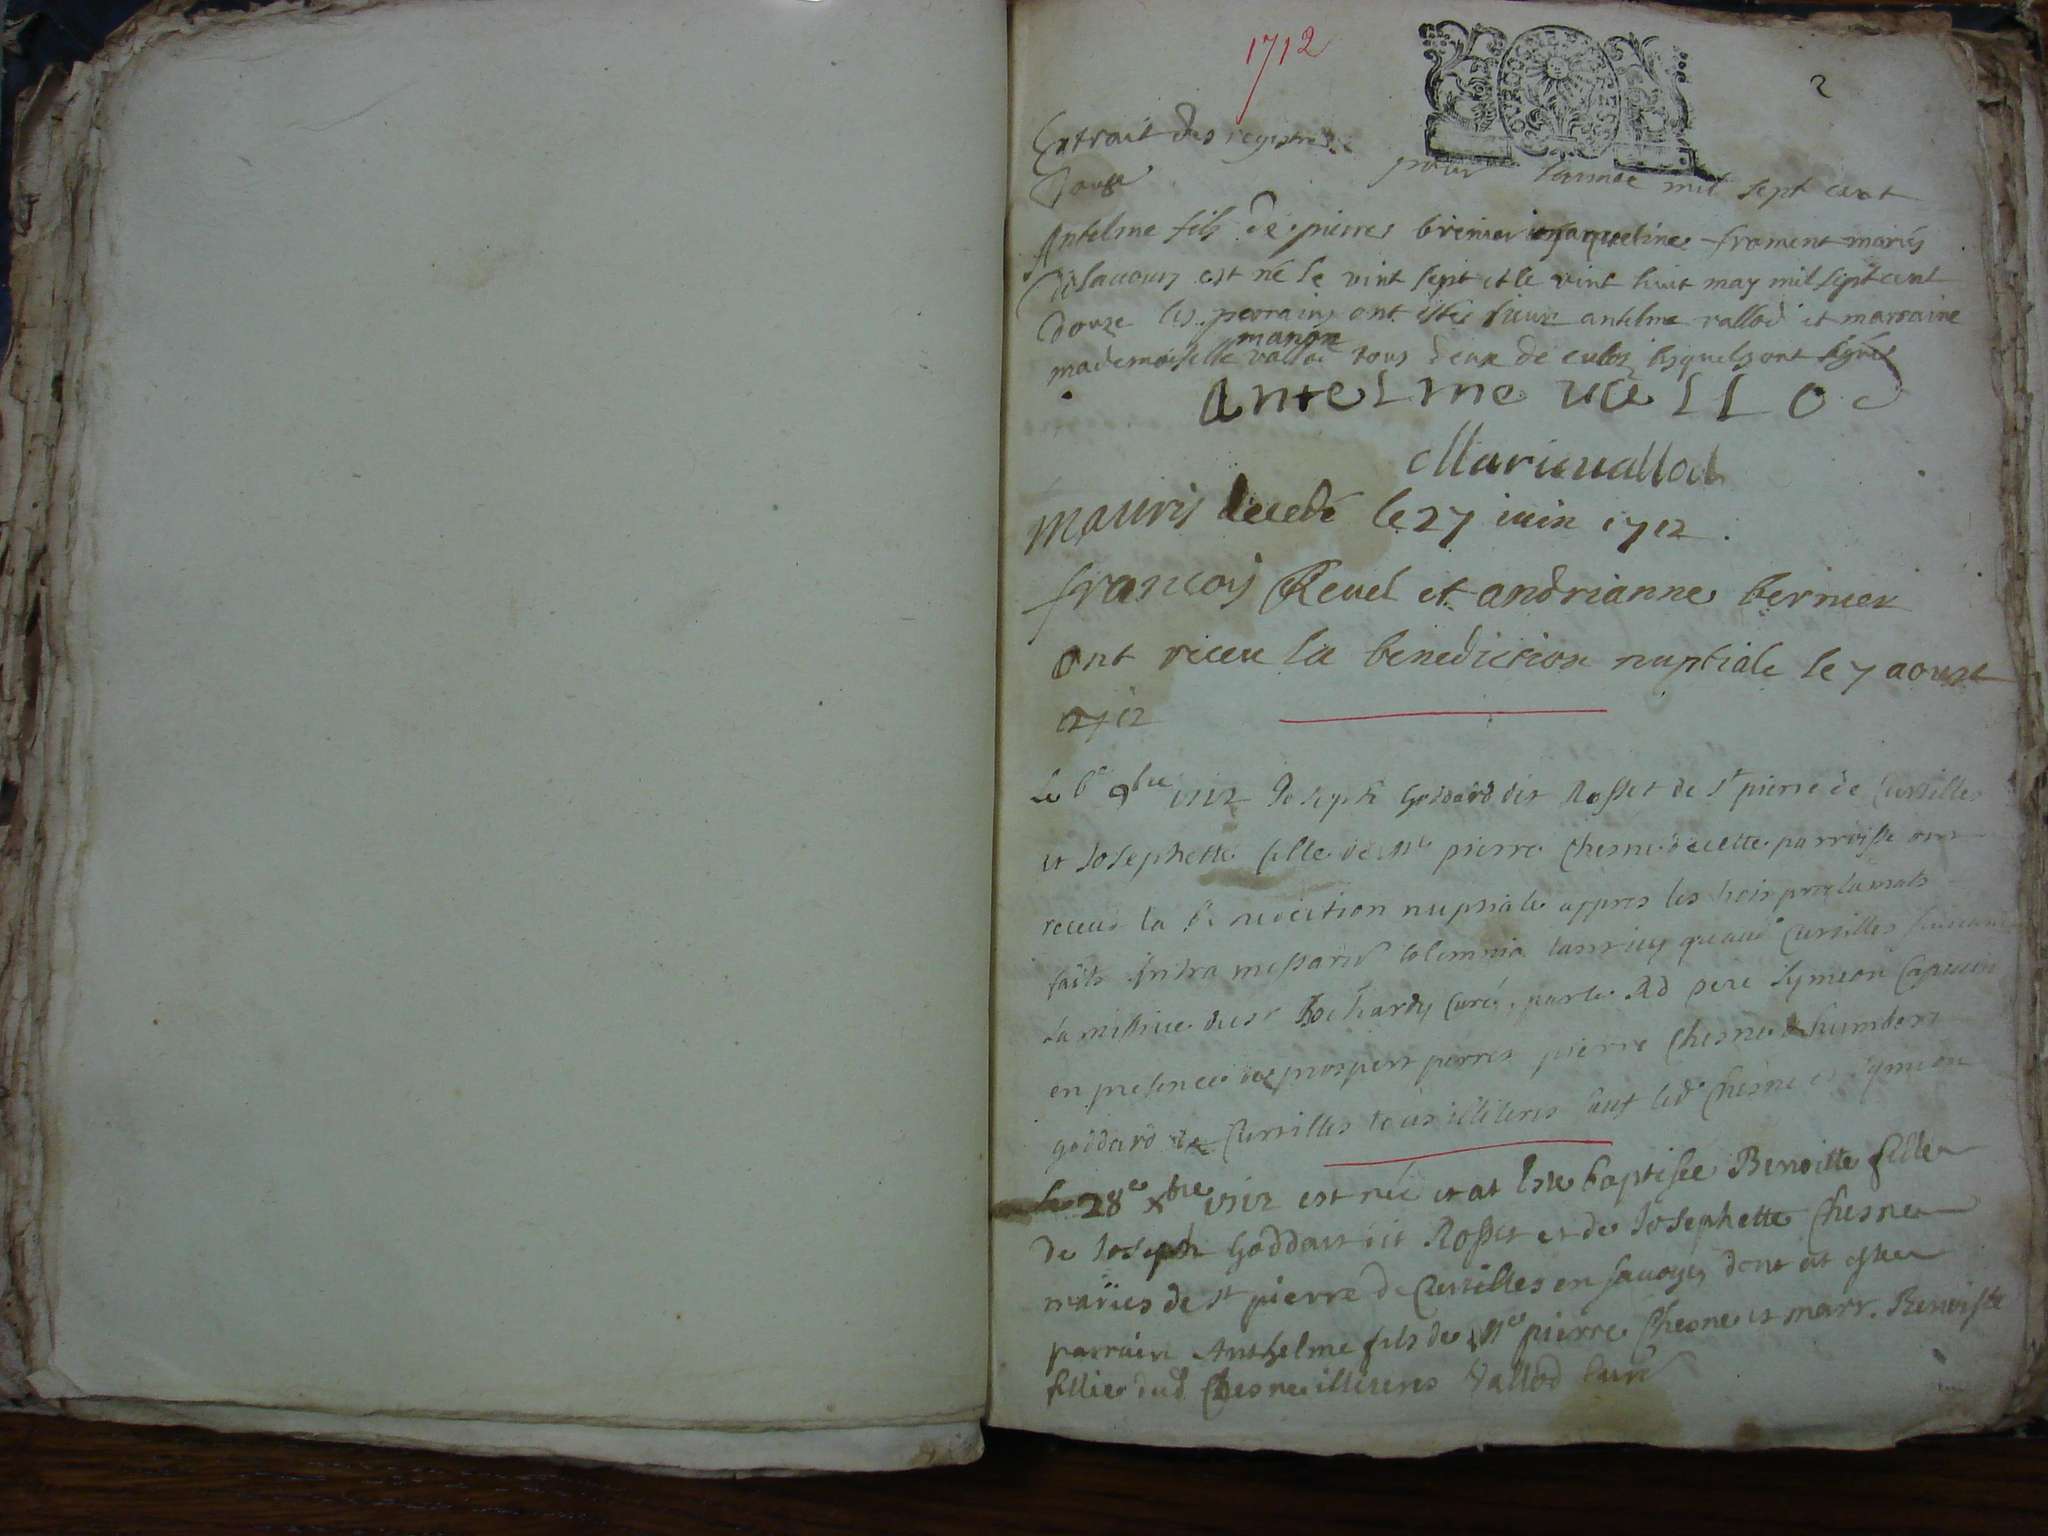 1712
2
Extrait des registres pour lannee mil sept cent
douze
Antelme fils de pierre brinier jaqueline frament mariés
de est né le vint sept et le vint huit may mil sept cent
douze les perrains ont estés sieur antelme vallod et marraine
manon
mademoiselle vallod tous deux de culoz lesquels ont signés
antelme vallod
Marie vallod
Mauris decedé le 27 iuin 1712.
francois Revel et andrianne bernier
ont receu la benediction nuptiale le 7 aoust
1712
Le 6e 9bre 1712 Joseph Goddard dit Rosset de st pierre de Curtilles
et Josephette fille de Me pierre Chesne de cette parroisse ont
receus la benediction nuptiale appres les trois proclamats
faits intra missarum solemnia tant icy qu'aud Curtilles
la missive du sr curé, par le Rd pere Symeon Capucin
en presence de prospert perret pierre Chesne humbert
goddard de Curtilles tous illiteres sauf led Chesne et Symeon
Le 28e xbre 1712 est née et at esté baptisée Benoitte fille
de Joseph Goddart dit Rosset et de Josephette Chesne
mariés de st pierre de Curtilles en savoye dont at esté
parrain Anthelme fils de Me pierre Chesne et marr. Benoiste
fillie dud Chesne illiteres Vallod curé